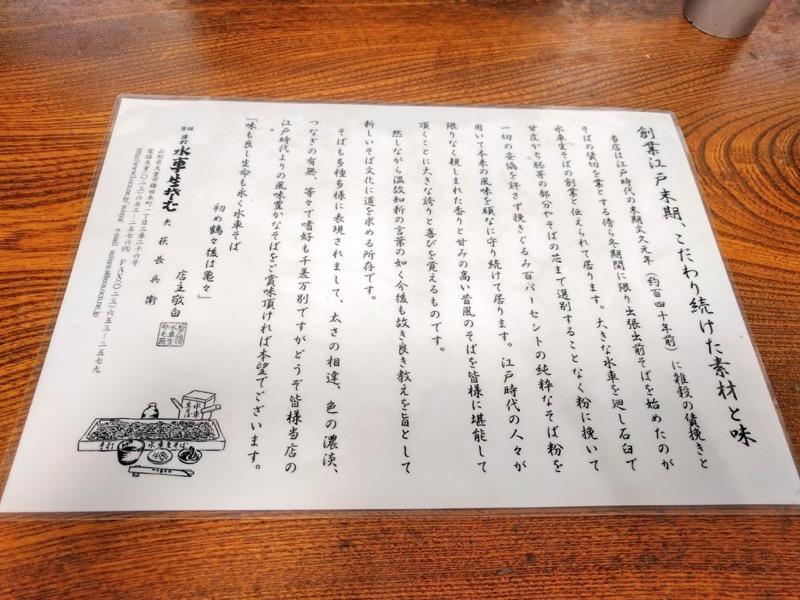 創業江戸末期、こだわり続けた素材と味
当店は江戸時代の末期文久元年(約百四十年前)に雑穀の賃挽きと
そばの貸切を業とする傍ら冬期間に限り出張出前そばを始めたのが
水車生そばの創業と伝えられて居ります。大きな水車を廻し石臼で
甘皮から胚芽の部分やそばの芯まで選別することなく粉に挽いて
一切の妥協を許さず挽きぐるみ百パーセントの純粋なそば粉を
用いて本来の風味を頑なに守り続けて居ります。江戸時代の人々が
限りなく親しまれた香りと甘みの高い昔風のそばを皆様に堪能して
頂くことに大きな誇りと喜びを覚えるものです。
然しながら温故知新の言葉の如く今後も故き良き教えを旨として
新しいそば文化に道を求める所存です。
そばも多種多様に表現されまして、太さの相違、色の濃淡、
つなぎの有無、等々で嗜好も千差万別ですがどうぞ皆様当店の
江戸時代よりの風味豊かなそばをご賞味頂ければ本望でございます。
「味も良し生命も永く水車そば
初め鶴々後は亀々」
店主敬白
登録
手打 水車生そば
矢萩長兵衛
山形県天童市鎌田本町一丁目三番二十六号
電話天童(〇二三)六五三―二五七六㈹ FAX〇二三)六五三―二五七九
手打
水車生そば
水車
生そば